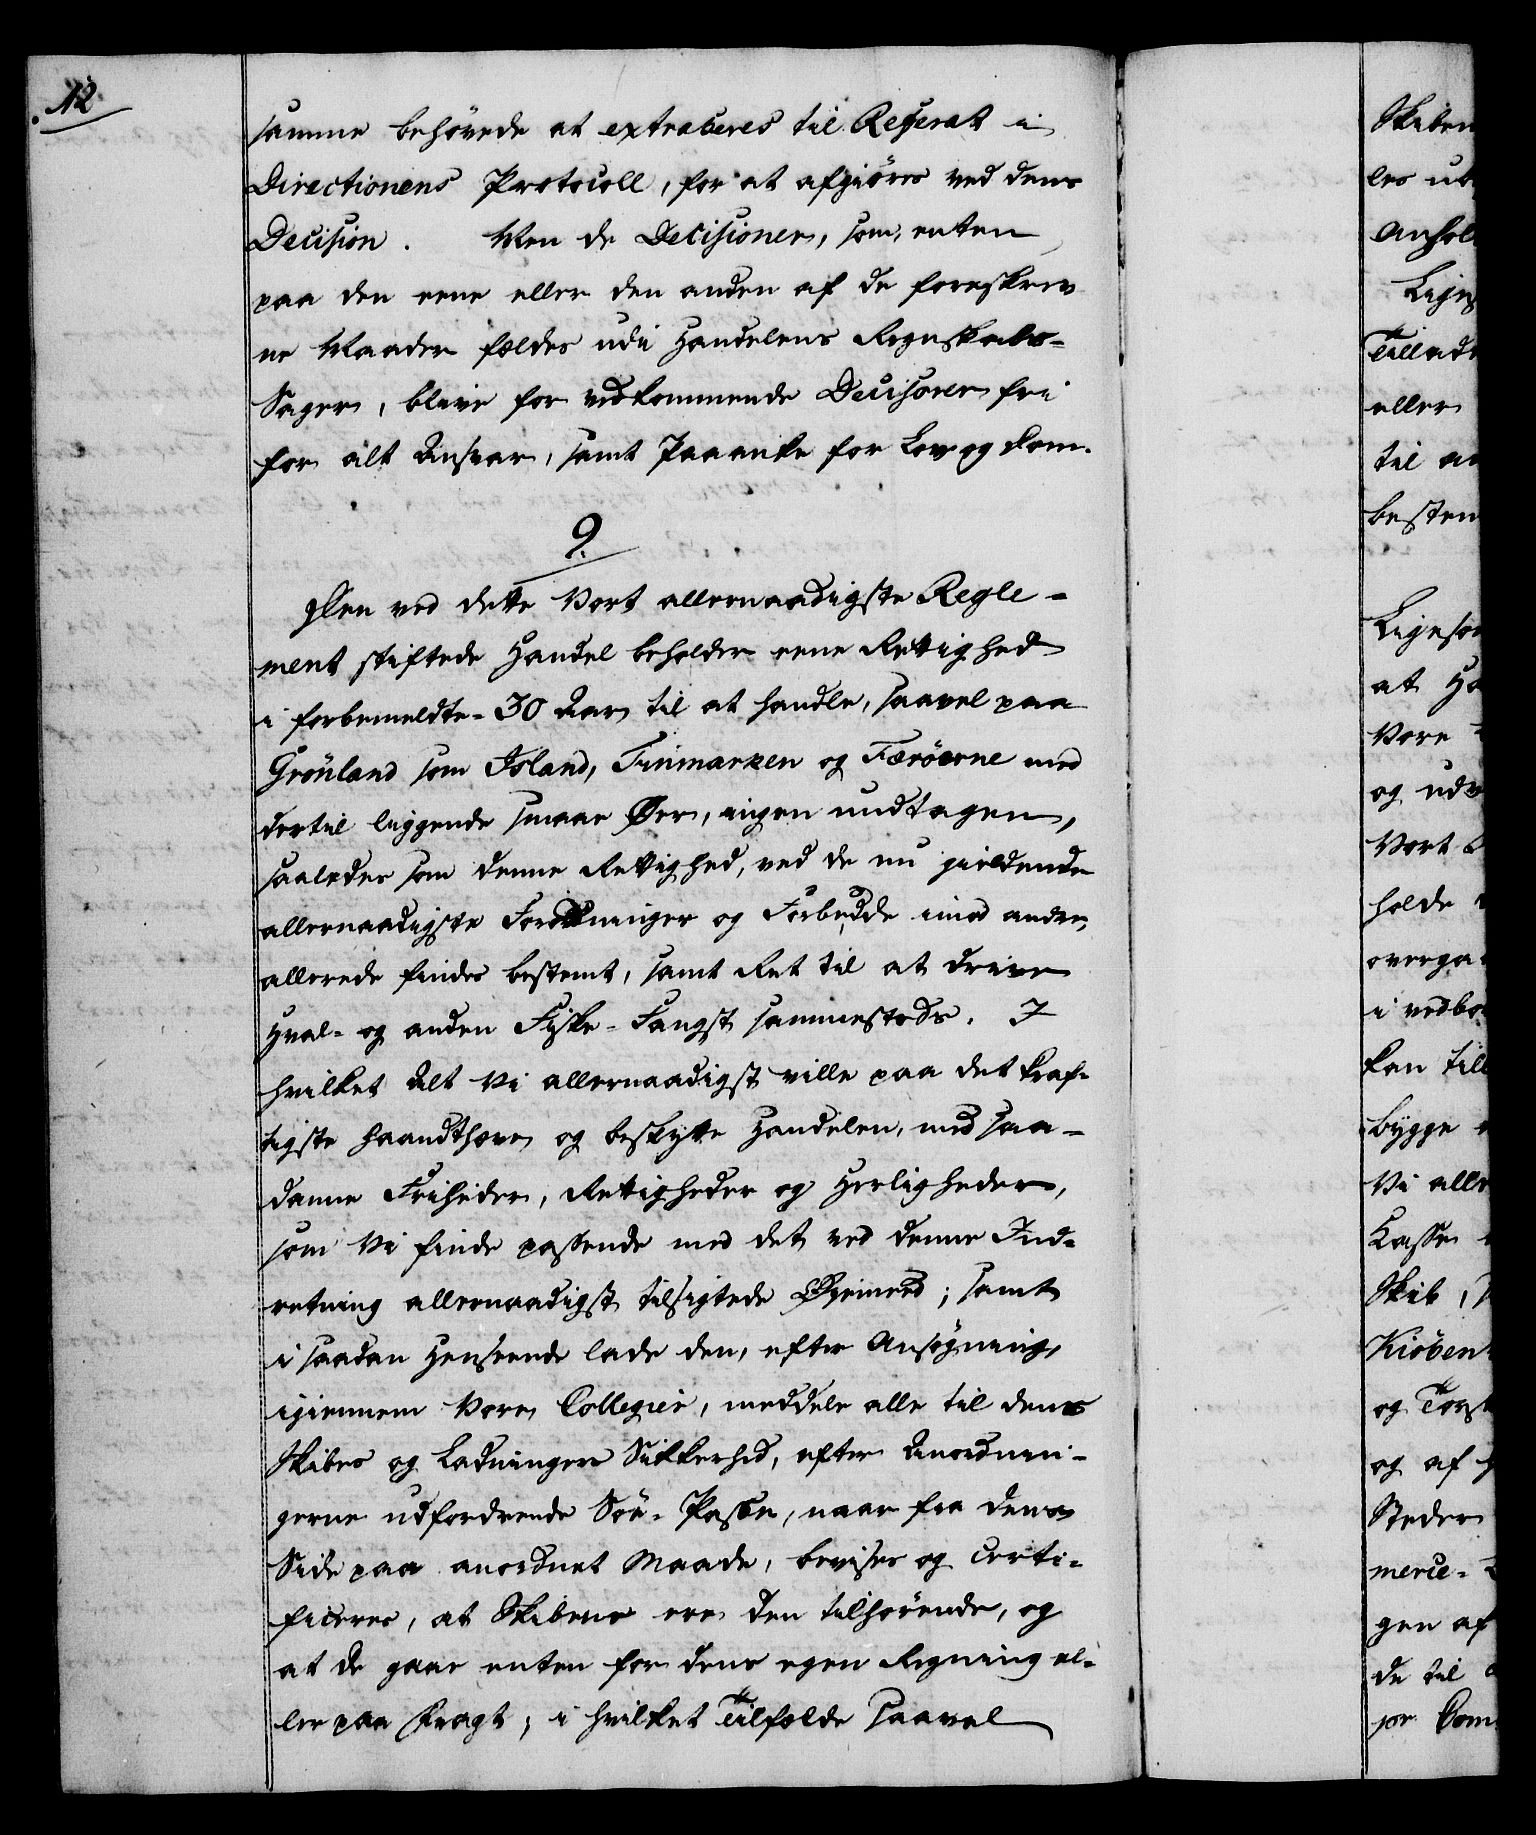 12.
samme behövede at extraheres til Referat i
Directionens Protocoll, for at afgiöres ved dens
Decision. Men de Decisioner, som, enten
paa den eene eller den anden af de foreskrev
ne Maader fældes udi Handelens Regnskabs-
Sager, blive for vedkommende Decisorer fri
for alt Ansvar, samt Paaanke for Lov og Dom.
9.
Den ved dette Vort allernaadigste Regle-
ment stiftede Handel beholder eene Rettighed
i forbemeldte 30 Aar til at handle, saavel paa
Grönland som Island, Finmarken og Færöerne med
dertil liggende smaae Øer, ingen undtagen,
saaledes som denne Rettighed, ved de nu gieldende
allernaadigste Forordninger og Forbudde imod andre,
allerede findes bestemt, samt Ret til at drive
Hval- og anden Fiske-Fangst sammesteds. I
hvilket Alt Vi allernaadigst ville paa det kraf-
tigste haandthæve og beskytte Handelen, med saa-
danne Friheder, Rettigheder og Herligheder,
som Vi finde passende med det ved denne Ind-
retning allernaadigst tilsigtede Øyemeed; samt
i saadan Henseende lade den, efter Ansøgning,
igiennem Vore Collegier, meddele alle til dens
Skibes og Ladningers Sikkerhed, efter Anordnin-
gerne udfordrende Söe-Passe, naar fra dens
Side paa anordnet Maade, bevises og certi-
ficeres, at Skibene ere den tilhörende, og
at de gaae enten for dens egen Regning el-
ler paa Fragt; i hvilket Tilfælde saavel
Skiben
les ub
Anhol
Lige
Tillad
eller
til an
bestem
Ligesom
at Ha
Vore
og udv
Vort
holde
overga
i vedbo
kan till
bygge
Vi alle
Casse
Skib,
Kiöben-
og Torsk
og af
Steder
merce-
gen af
de til
jor Com